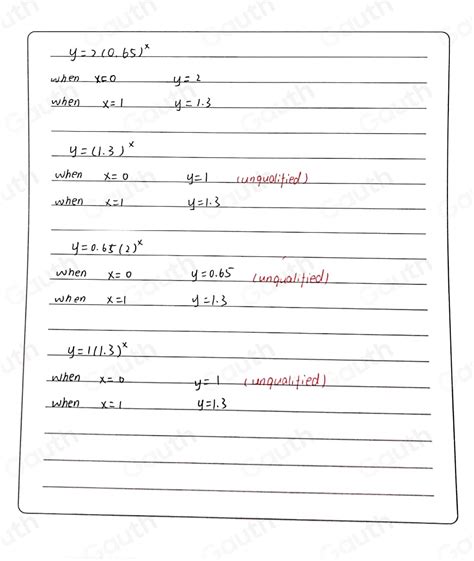 y=2(0.65)^x
when x=0 y=2
when x=1 y=1.3
y=(1.3)^x
when x=0 y=1 (unqualified)
when x=1 y=1.3
y=0.65(2)^x
when x=0 y=0.65 (unqualified)
when x=1 y=1.3
y=1(1.3)^x
when x=0 y=1 (unqualified)
when x=1 y=1.3
Gauth